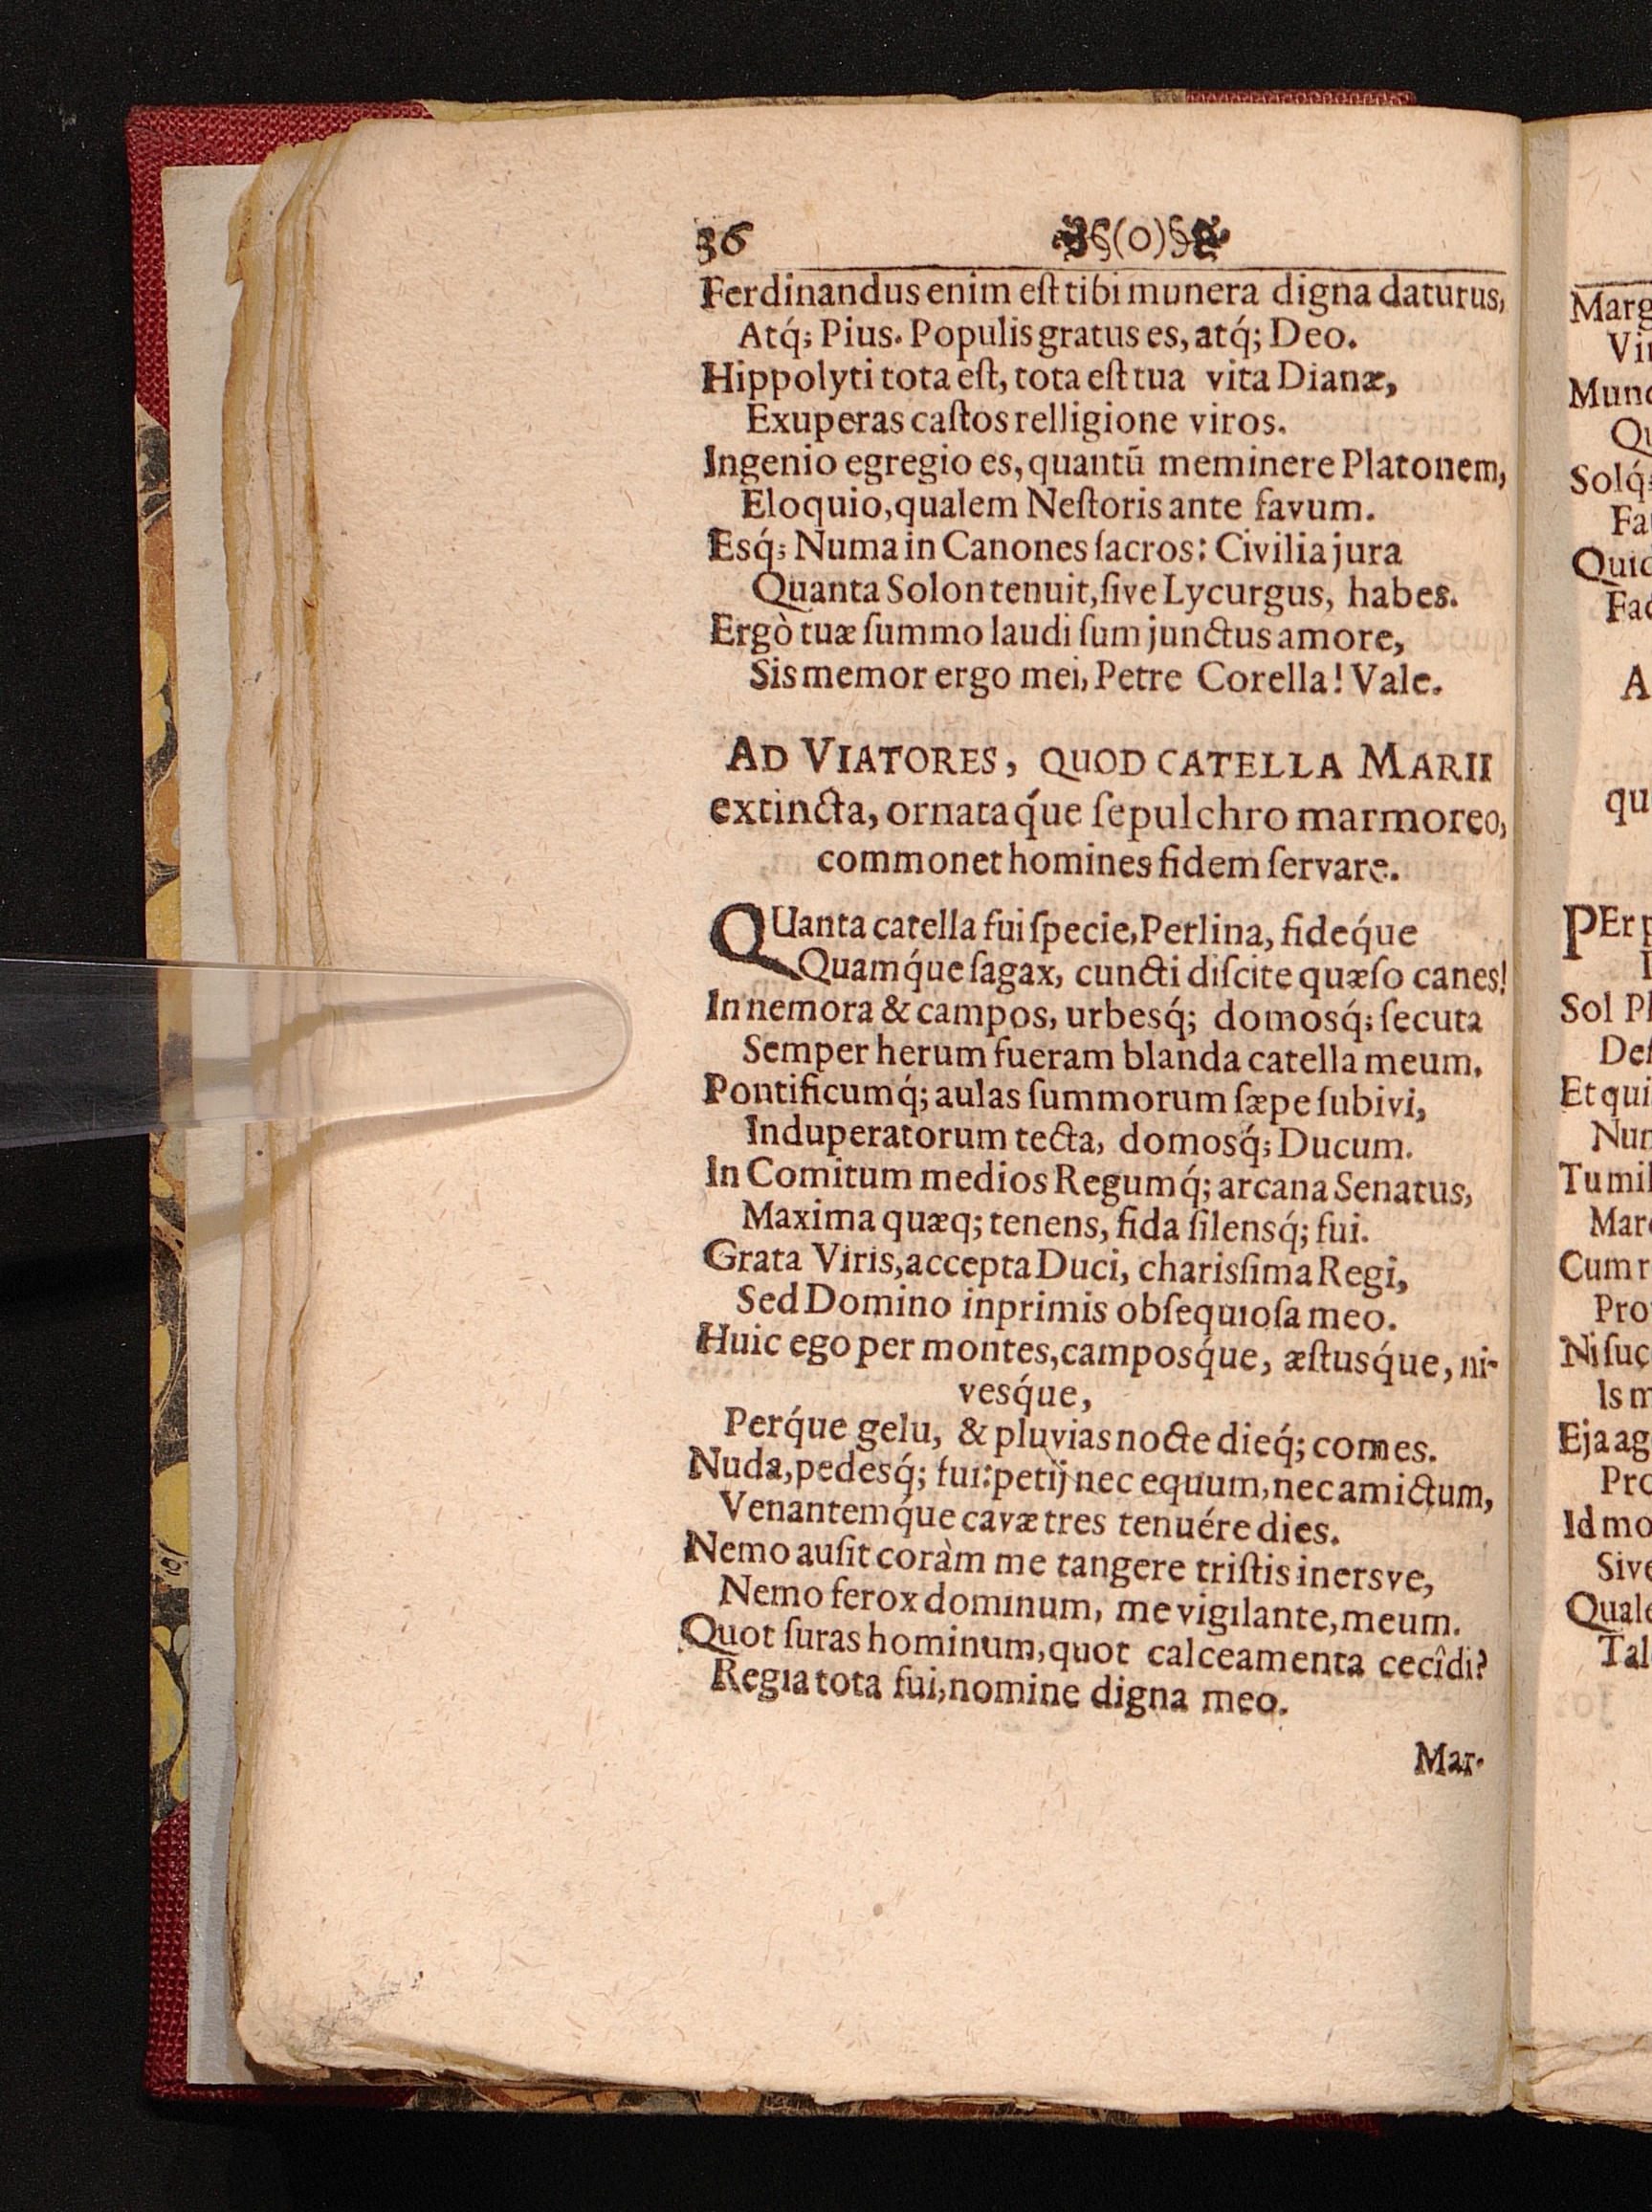 36 (0)
Ferdinandus enim eſt tibi munera digna daturus,
Atq́; Pius. Populis gratus es, atq́; Deo.
Hippolyti tota eſt, tota eſt tua vita Dianæ,
Exuperas caſtos relligione viros.
Ingenio egregio es, quantũ meminere Platonem,
Eloquio, qualem Neſtoris ante favum.
Esq́; Numa in Canones ſacros: Civilia jura
Quanta Solon tenuit, ſive Lycurgus, habes.
Ergò tuæ ſummo laudi ſum junctus amore,
Sis memor ergo mei, Petre Corella! Vale.
AD VIATORES, QUOD CATELLA MARII
extincta, ornataq́ue ſepulchro marmoreo,
commonet homines fidem ſervare.
QUanta catella fui ſpecie, Perlina, fideq́ue
Quamq́ue ſagax, cuncti diſcite quæſo canes!
In nemora & campos, urbesq́; domosq́; ſecuta
Semper herum fueram blanda catella meum.
Pontificumq́; aulas ſummorum ſæpe ſubivi,
Induperatorum tecta, domosq́; Ducum.
In Comitum medios Regumq́; arcana Senatus,
Maxima quæq; tenens, fida ſilensq́; fui.
Grata Viris, accepta Duci, charisſima Regi,
Sed Domino inprimis obſequioſa meo.
Huic ego per montes, camposq́ue, æſtusq́ue, ni-
vesq́ue,
Perq́ue gelu, & pluvias nocte dieq́; comes.
Nuda, pedesq́; fui: petij nec equum, nec amictum,
Venantemq́ue cavæ tres tenuére dies.
Nemo auſit coràm me tangere triſtis inersve,
Nemo ferox dominum, me vigilante, meum.
Quot ſuras hominum, quot calceamenta cecîdi?
Regia tota fui, nomine digna meo.
Mar-
Marg
Vi
Mund
Qu
Solq́;
Fa
Quid
Fac
A
qu
PEr p
Sol Pl
Def
Et qui
Nun
Tu mil
Mar
Cum r
Pro
Ni ſuç
Is m
Eja ag
Pro
Id mo
Sive
Quale
Tal